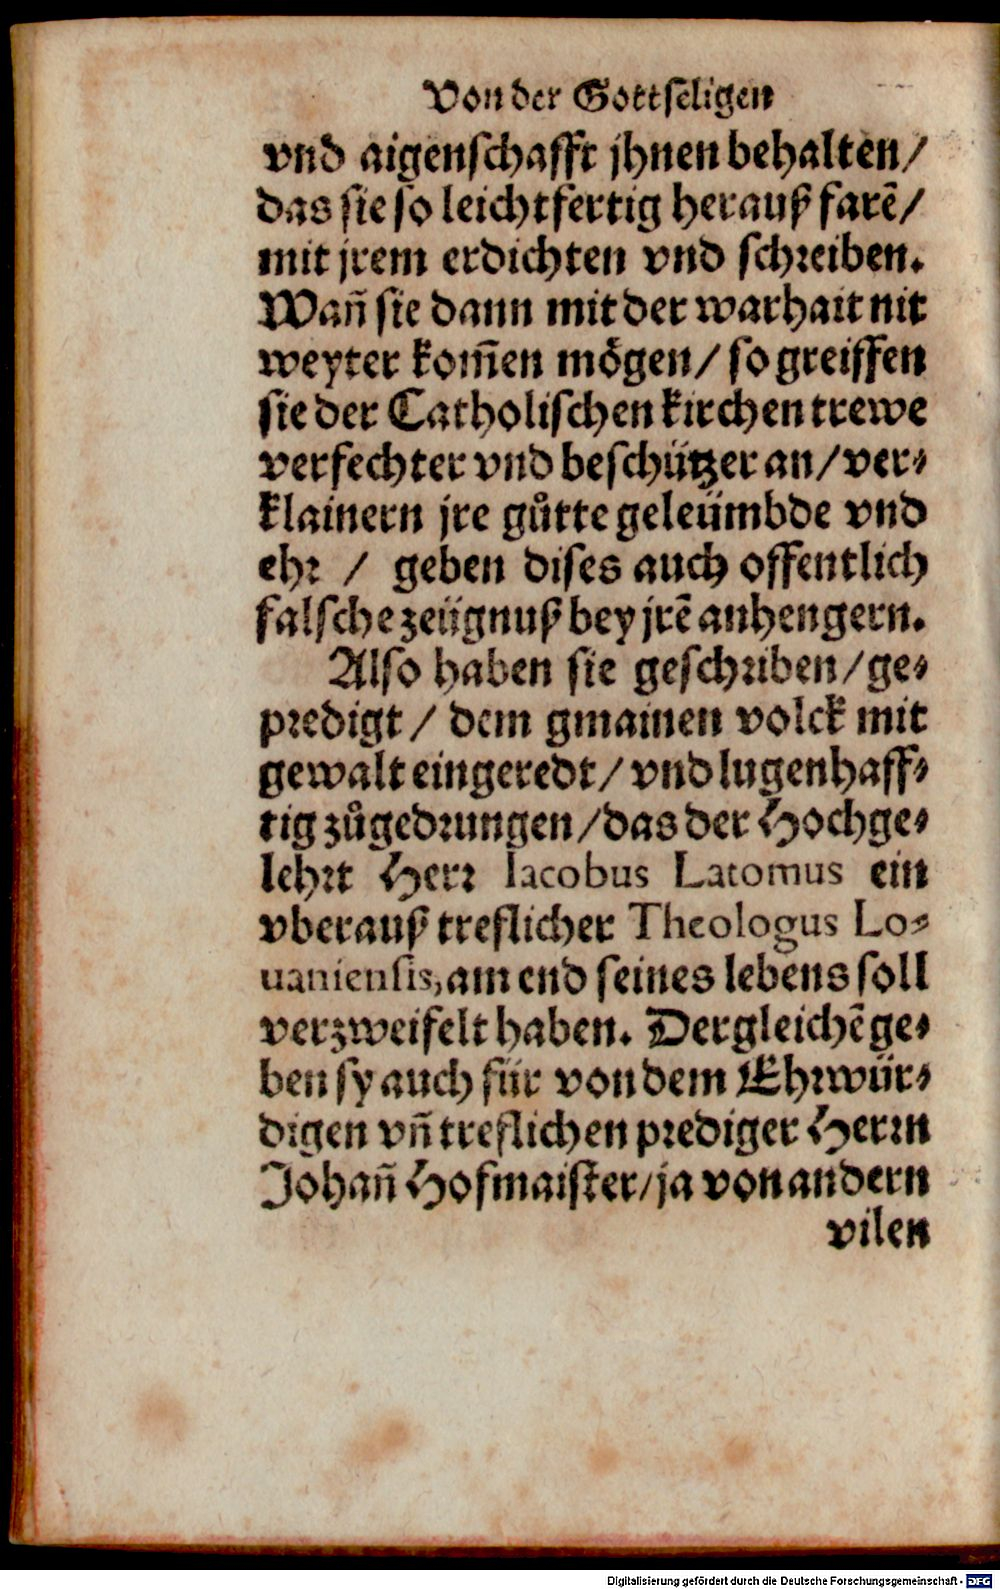 Von der Gottseligen
vnd aigenschafft jhnen behalten/
das sie so leichtfertig herauß farē/
mit jrem erdichten vnd schreiben.
Wañ sie dann mit der warhait nit
weyter kom̄en mögen/ so greiffen
sie der Catholischen kirchen trewe
verfechter vnd beschützer an/ ver⸗
klainern jre gůtte geleümbde vnd
ehr / geben dises auch offentlich
falsche zeügnuß bey jrē anhengern.
Also haben sie geschriben/ ge⸗
predigt / dem gmainen volck mit
gewalt eingeredt/ vnd lugenhaff⸗
tig zůgedrungen/ das der Hochge⸗
lehrt Herr Iacobus Latomus ein
vberauß treflicher Theologus Lo⸗
uaniensis, am end seines lebens soll
verzweifelt haben. Dergleichē ge⸗
ben sy auch für von dem Ehrwür⸗
digen vñ treflichen prediger Herrn
Johañ Hofmaister/ ja von andern
vilen
Digitalisierung gefördert durch die Deutsche Forschungsgemeinschaft - DFG